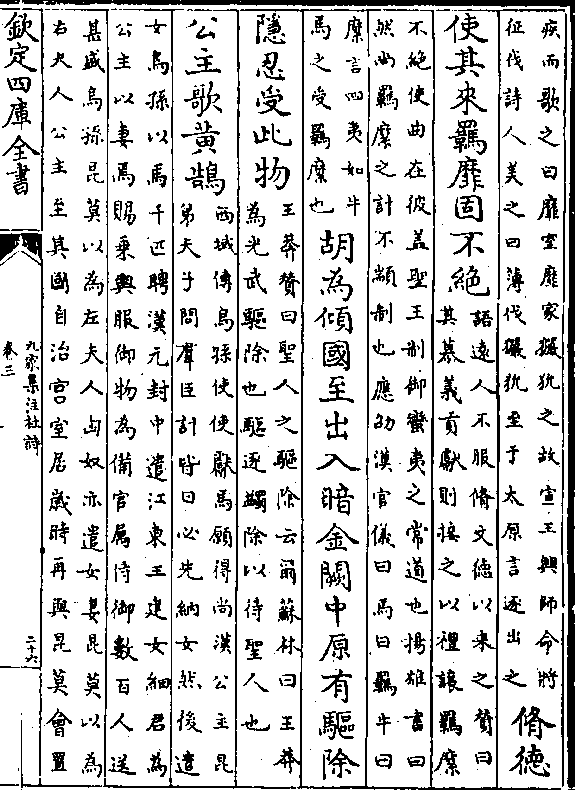 疾而歌之曰靡室靡家玁狁之故宣王興師命將
征伐詩人美之曰薄伐玁狁至于太原言逐出之
脩德
使其來羈靡固不絶
語遠人不服脩文徳以來之賛曰
其慕義貢獻則接之以禮讓羈縻
不絶使曲在彼蓋聖王制御蠻夷之常道也揚雄書曰
然尚羈縻之計不顓制也應劭漢官儀曰馬曰羈牛曰
縻言四夷如牛
馬之受羈縻也
胡為傾國至出入暗金闕中原有驅除
隱忍受此物
王莽賛曰聖人之驅除云爾蘇林曰王莽
為光武驅除也驅逐蠲除以待聖人也
公主歌黄鵠
西域傳烏孫使使獻馬願得尚漢公主昆
弟天子問羣臣計皆曰必先納女然後遣
女烏孫以馬千匹聘漢元封中遣江東王建女細君為
公主以妻焉賜乗輿服御物為備官屬侍御數百人送
甚盛烏孫昆莫以為左夫人匈奴亦遣女妻昆莫以為
右夫人公主至其國自治宫室居歲時再與昆莫會置
欽定四庫全書
九家集注杜詩
卷三
二十六